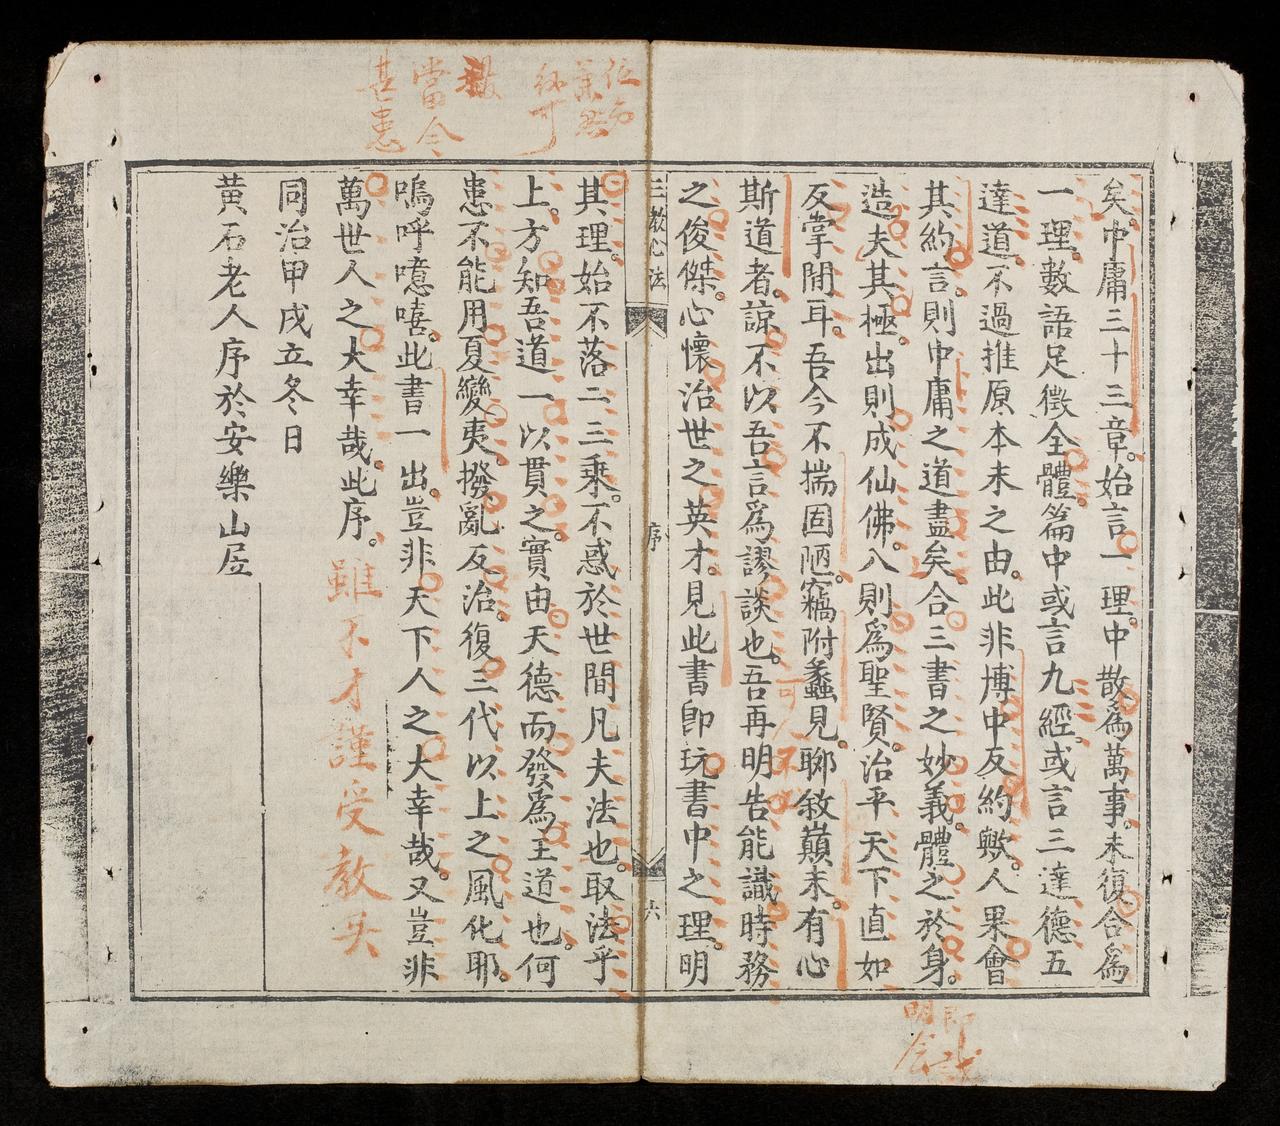 矣。中庸三十三章。始言一理。中散爲萬事。末復合爲
一理。數語足徵全體。篇中或言九經。或言三達德五
達道。不過推原本末之由。此非博中反約歟。人果會
其約言。則中庸之道盡矣。合三書之妙義。體之於身。
造夫其極。出則成仙佛。入則爲聖賢。治平天下直如
反掌間耳。吾今不揣固陋。竊附蠡見。聊敘巔末。有心
斯道者。諒不以吾言爲謬談也。吾再明告能識時務
之俊傑。心懷治世之英才。見此書卽玩書中之理。明
三教心法
序
六
其理。始不落二三乘。不惑於世間凡夫法也。取法乎
上。方知吾道一以貫之。實由天德而發爲王道也。何
患不能用夏變夷。撥亂反治。復三代以上之風化耶。
嗚呼噫嘻。此書一出。豈非天下人之大幸哉。又豈非
萬世人之大幸哉。此序。雖不才謹受教矣
同治甲戌立冬日
黃石老人序於安樂山居
當今
甚患
可人不